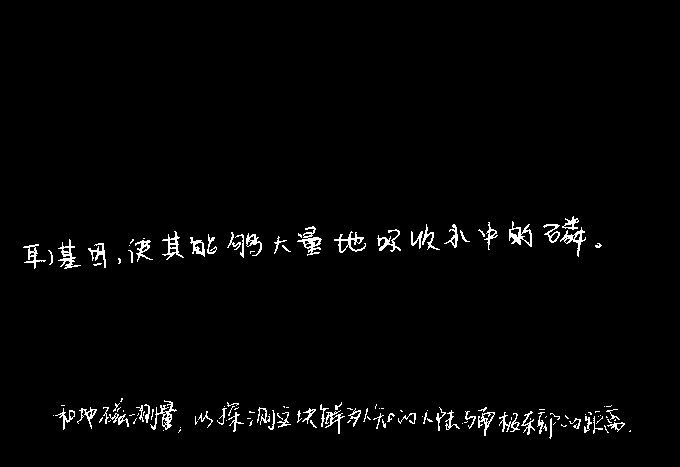 基因,使其能够大量地吸收水中的磷。
和地磁测量,以探测这块鲜为人知的大陆与南极东部的距离.